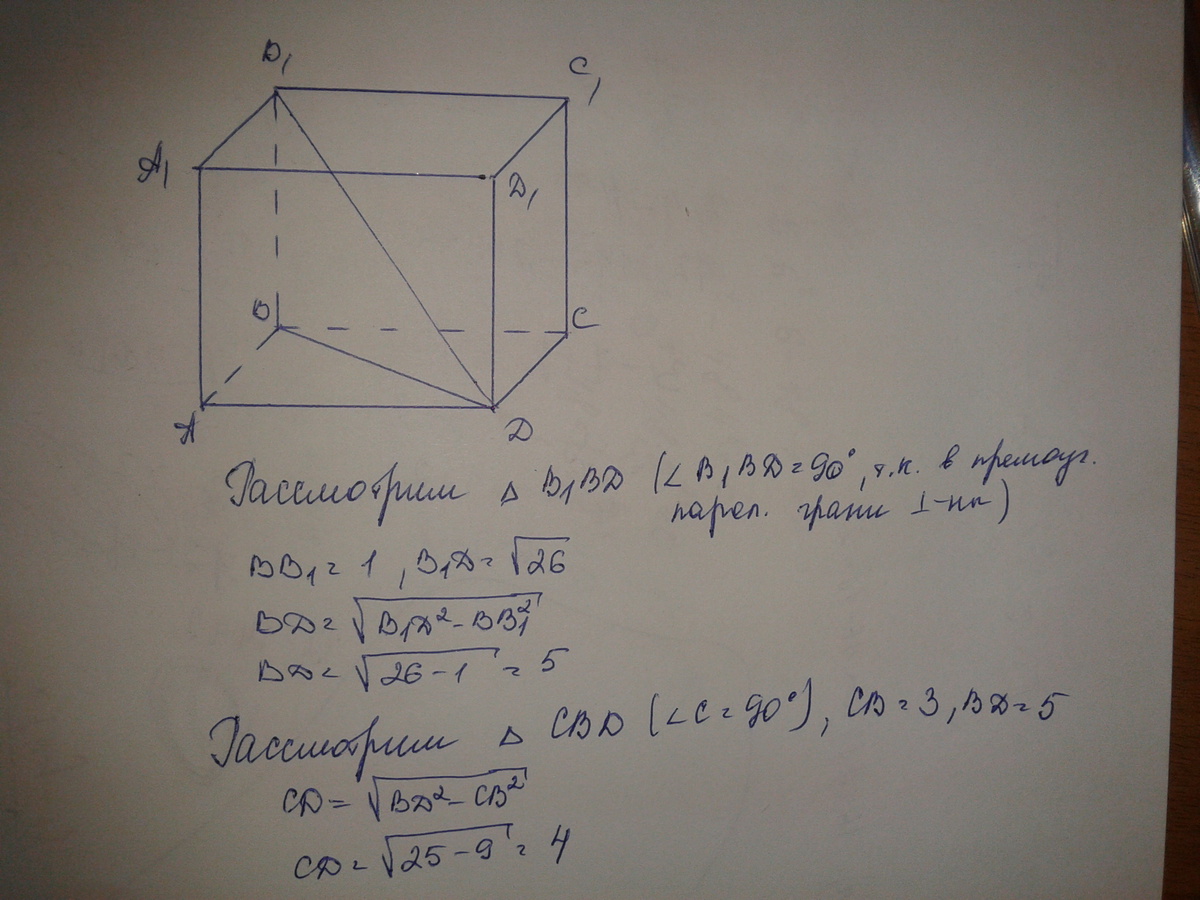 B₁
C₁
A₁
D₁
B
C
A
D
Рассмотрим △ B₁BD (∠B₁BD=90°, т.к. в премоуг.
парал. грани ⊥-ны)
BB₁ = 1, B₁D = √26
BD = √B₁D² - BB₁²
BD = √26 - 1 = 5
Рассмотрим △ CBD (∠C = 90°), CB = 3, BD = 5
CD = √BD² - CB²
CD = √25 - 9 = 4